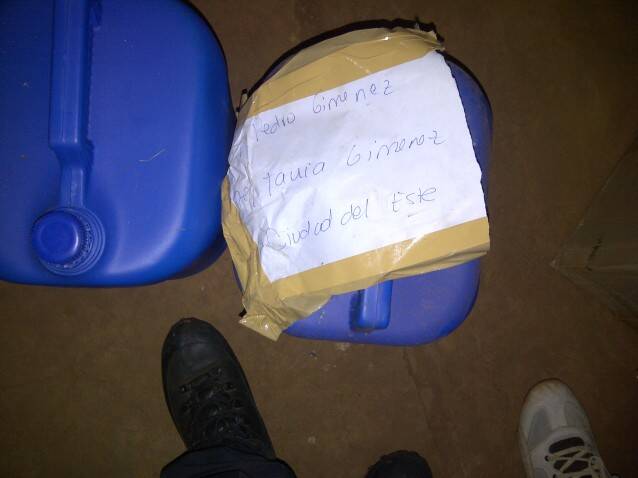 Pedro Gimenez
Tania Gimenez
Ciudad del Este